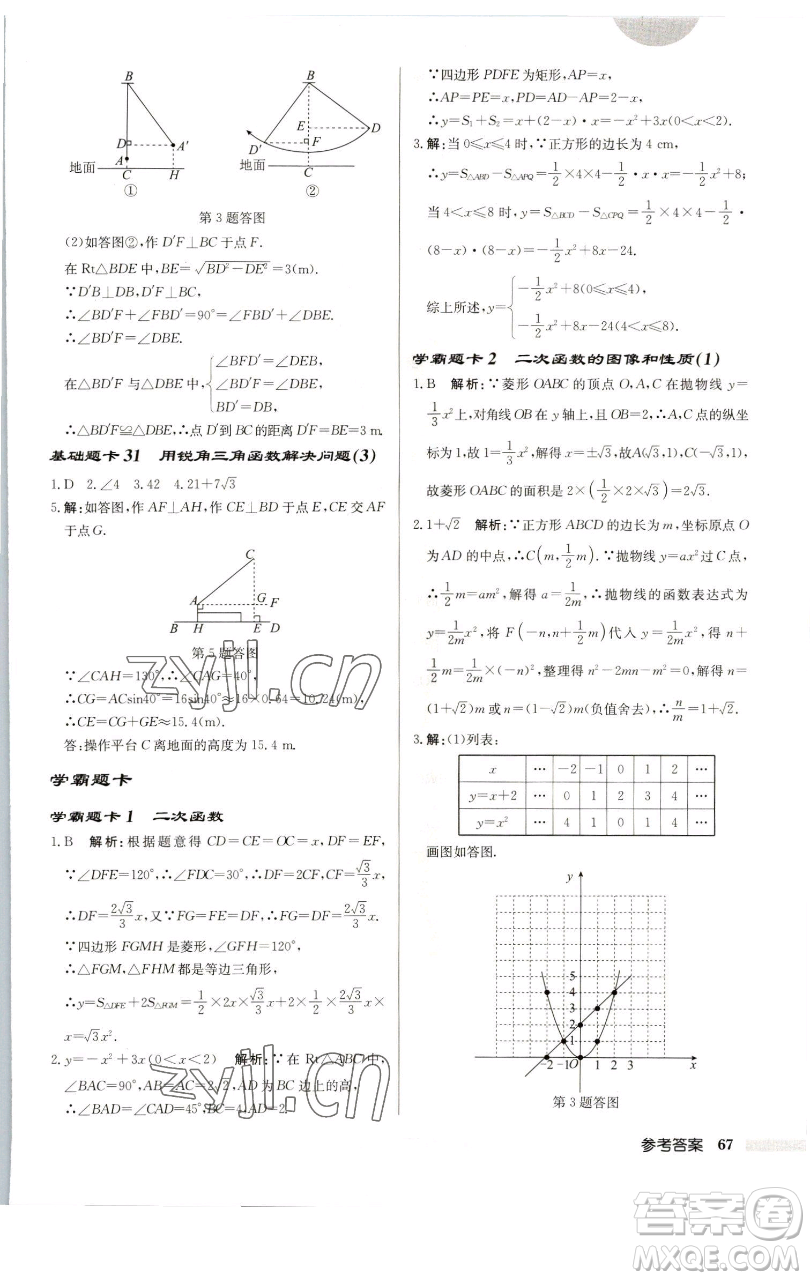 B
D
A
A'
地面
C
H
①
B
E
D
D'
F
地面
C
②
第3题答图
(2)如答图②,作D'F⊥BC于点F.
在Rt△BDE中,BE=√(BD²-DE²)=3(m).
∵D'B⊥DB,D'F⊥BC,
∴∠BD'F+∠FBD'=90°=∠FBD'+∠DBE.
∴∠BD'F=∠DBE.
在△BD'F与△DBE中,{∠BFD'=∠DEB, ∠BD'F=∠DBE, BD'=DB,
∴△BD'F≌△DBE,∴点D'到BC的距离D'F=BE=3 m.
基础题卡31 用锐角三角函数解决问题(3)
1.D 2.∠4 3.42 4.21+7√3
5.解:如答图,作AF⊥AH,作CE⊥BD于点E,CE交AF
于点G.
C
A
G
F
B
H
E
D
第5题答图
∵∠CAH=130°,∴∠CAG=40°,
∴CG=ACsin40°=16sin40°≈16×0.64=10.24(m).
∴CE=CG+GE≈15.4(m).
答:操作平台C离地面的高度为15.4 m.
学霸题卡
学霸题卡1 二次函数
1.B 解析:根据题意得CD=CE=OC=x,DF=EF,
∵∠DFE=120°,∴∠FDC=30°,∴DF=2CF,CF=√3/3x,
∴DF=2√3/3x,又∵FG=FE=DF,∴FG=2√3/3x.
∵四边形FGMH是菱形,∠GFH=120°,
∴△FGM,△FHM都是等边三角形,
∴y=S△DFE+2S△FGM=1/2×2x×√3/3x+2×1/2×2√3/3x×
x=√3x².
2.y=-x²+3x(0<x<2) 解析:∵在Rt△ABC中,
∠BAC=90°,AB=AC=2√2,AD为BC边上的高,
∴∠B=∠C=45°,BC=4,AD=BD=DC=2.
∵四边形PDFE为矩形,AP=x,
∴AP=PE=x,PD=AD-AP=2-x,
∴y=S₁+S₂=x+(2-x)·x=-x²+3x(0<x<2).
3.解:当0≤x≤4时,∵正方形的边长为4 cm,
∴y=S△ABD-S△APQ=1/2×4×4-1/2·x·x=-1/2x²+8;
当4<x≤8时,y=S△BCD-S△CPQ=1/2×4×4-1/2·
(8-x)·(8-x)=-1/2x²+8x-24.
综上所述,y={-1/2x²+8(0≤x≤4), -1/2x²+8x-24(4<x≤8).
学霸题卡2 二次函数的图像和性质(1)
1.B 解析:∵菱形OABC的顶点O,A,C在抛物线y=
1/3x²上,对角线OB在y轴上,且OB=2,∴A,C点的纵坐
标为1,故1=1/3x²,解得x=±√3,故A(√3,1),C(-√3,1),
故菱形OABC的面积是2×(1/2×2√3×1)=2√3.
2.1+√2 解析:∵正方形ABCD的边长为m,坐标原点O
为AD的中点,∴C(m,1/2m).∵抛物线y=ax²过C点,
∴1/2m=am²,解得a=1/2m,∴抛物线的函数表达式为
y=1/2mx²,将F(-n,n+1/2m)代入y=1/2mx²,得n+
1/2m=1/2m×(-n)²,整理得n²-2mn-m²=0,解得n=
(1+√2)m或n=(1-√2)m(负值舍去),∴n/m=1+√2.
3.解:(1)列表:
x … -2 -1 0 1 2 …
y=x+2 … 0 1 2 3 4 …
y=x² … 4 1 0 1 4 …
画图如答图.
y
5
4
3
2
1
-2 -1 O 1 2 3 x
第3题答图
参考答案 67
zyjl.cn
zyjl.cn
答案圈
MXQE.COM